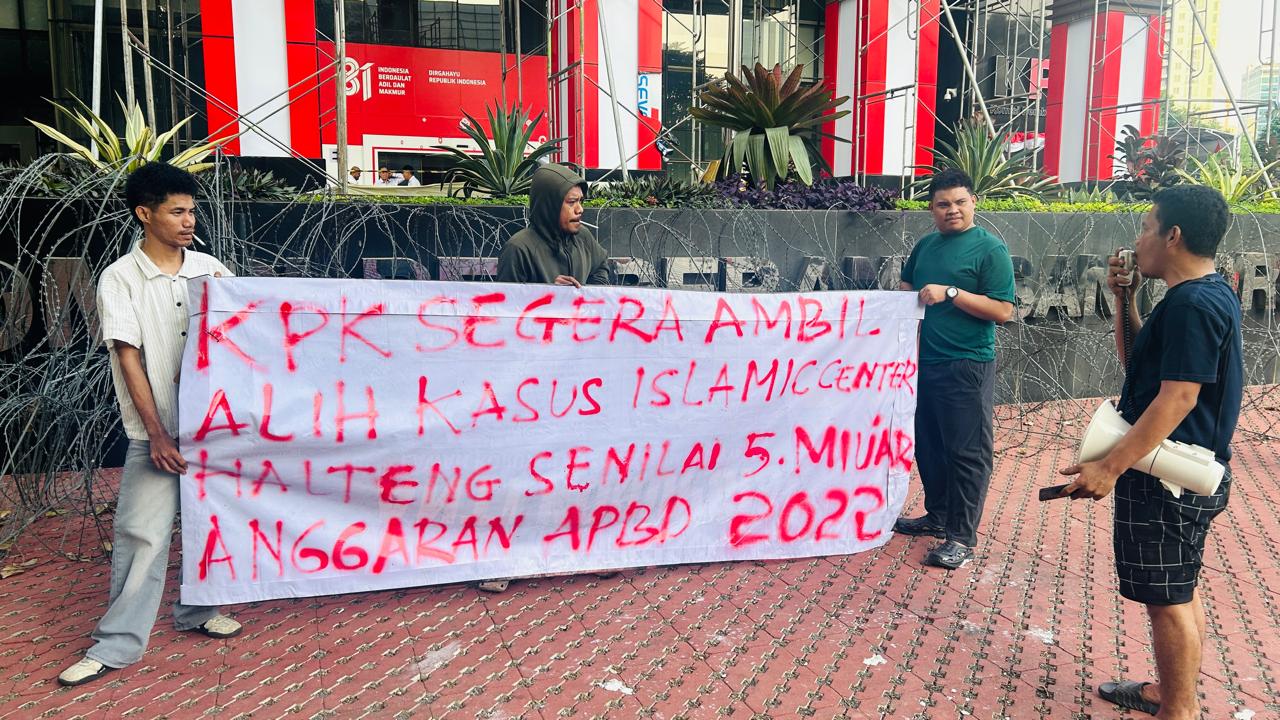 81
INDONESIA
BERDAULAT
ADIL DAN
MAKMUR
DIRGAHAYU
REPUBLIK INDONESIA
KPK SEGERA AMBIL
ALIH KASUS ISLAMIC CENTER
HALTENG SENILAI 5. MILIAR
ANGGARAN APBD 2022